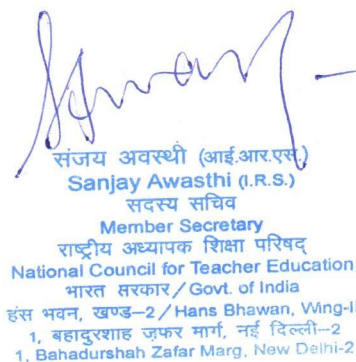 संजय अवस्थी (आई.आर.एस.)
Sanjay Awasthi (I.R.S.)
सदस्य सचिव
Member Secretary
राष्ट्रीय अध्यापक शिक्षा परिषद्
National Council for Teacher Education
भारत सरकार / Govt. of India
हंस भवन, खण्ड–2 / Hans Bhawan, Wing-II
1, बहादुरशाह ज़फर मार्ग, नई दिल्ली–2
1, Bahadurshah Zafar Marg, New Delhi-2